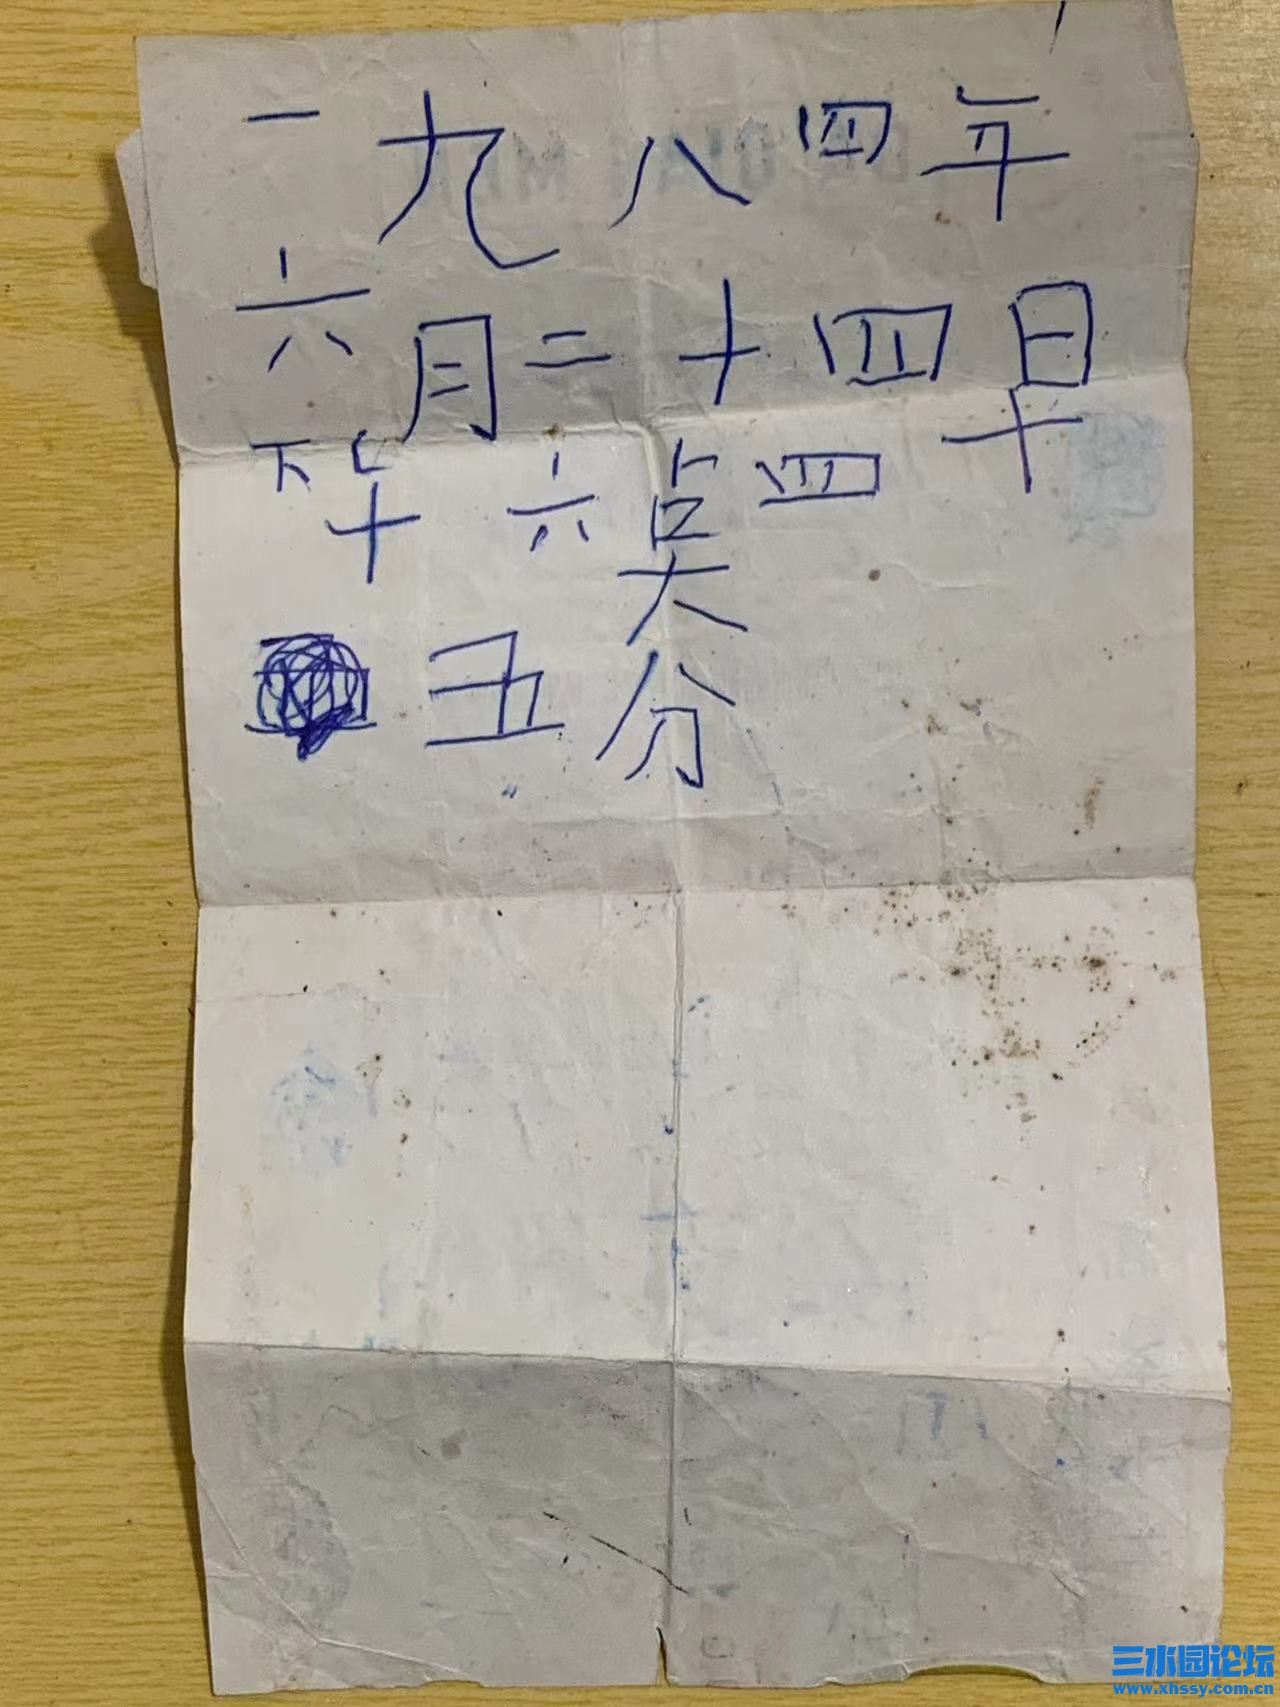 一九八四年
六月二十四日
下午六点四十
五分
三水园论坛
www.xhssy.com.cn